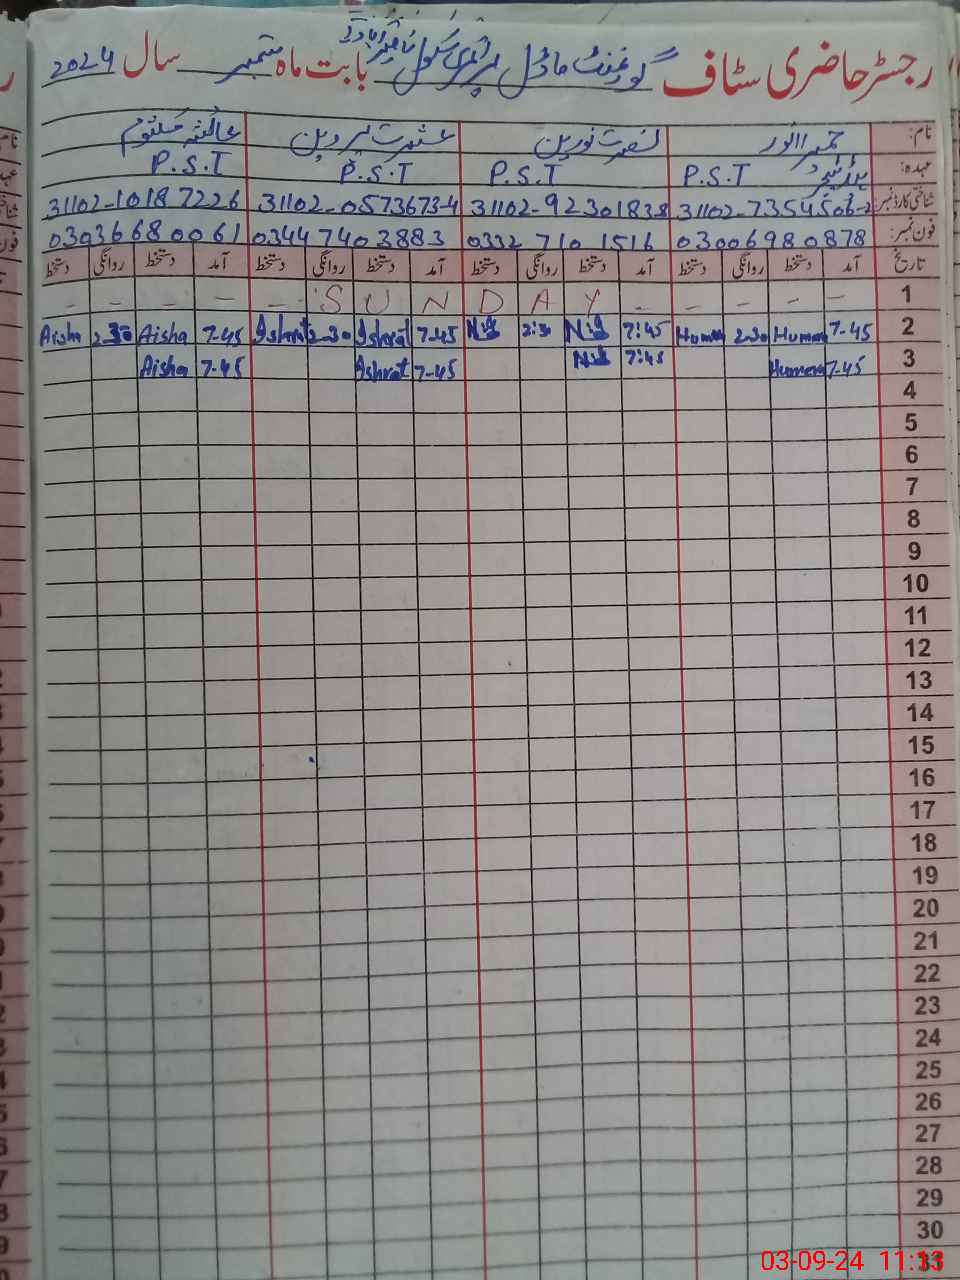 رجسٹر حاضری سٹاف گورنمنٹ ماڈل پرائمری سکول بابت ماہ ستمبر سال 2024
نام: حمیرا انور نصرت نورین عشرت پروین عائشہ کلثوم
عہدہ: P.S.T P.S.T P.S.T P.S.T
شناختی کارڈ نمبر: 31102-7354506-2 31102-9230183-8 31102-0573673-4 31102-1018722-6
فون نمبر: 03006980878 0332 710 1516 0344 7403883 03036680061
تاریخ آمد دستخط روانگی دستخط آمد دستخط روانگی دستخط آمد دستخط روانگی دستخط آمد دستخط روانگی دستخط
1 - - - - - S U N D A Y - - - - -
2 7-45 Humera 2-30 7:45 2:30 7-45 Ishrat 2-30 Ishrat 7-45 Aisha 2-30 Aisha
3 7-45 Humera 7:45 7-45 Ishrat 7-45 Aisha
4
5
6
7
8
9
10
11
12
13
14
15
16
17
18
19
20
21
22
23
24
25
26
27
28
29
30
31
03-09-24 11:13